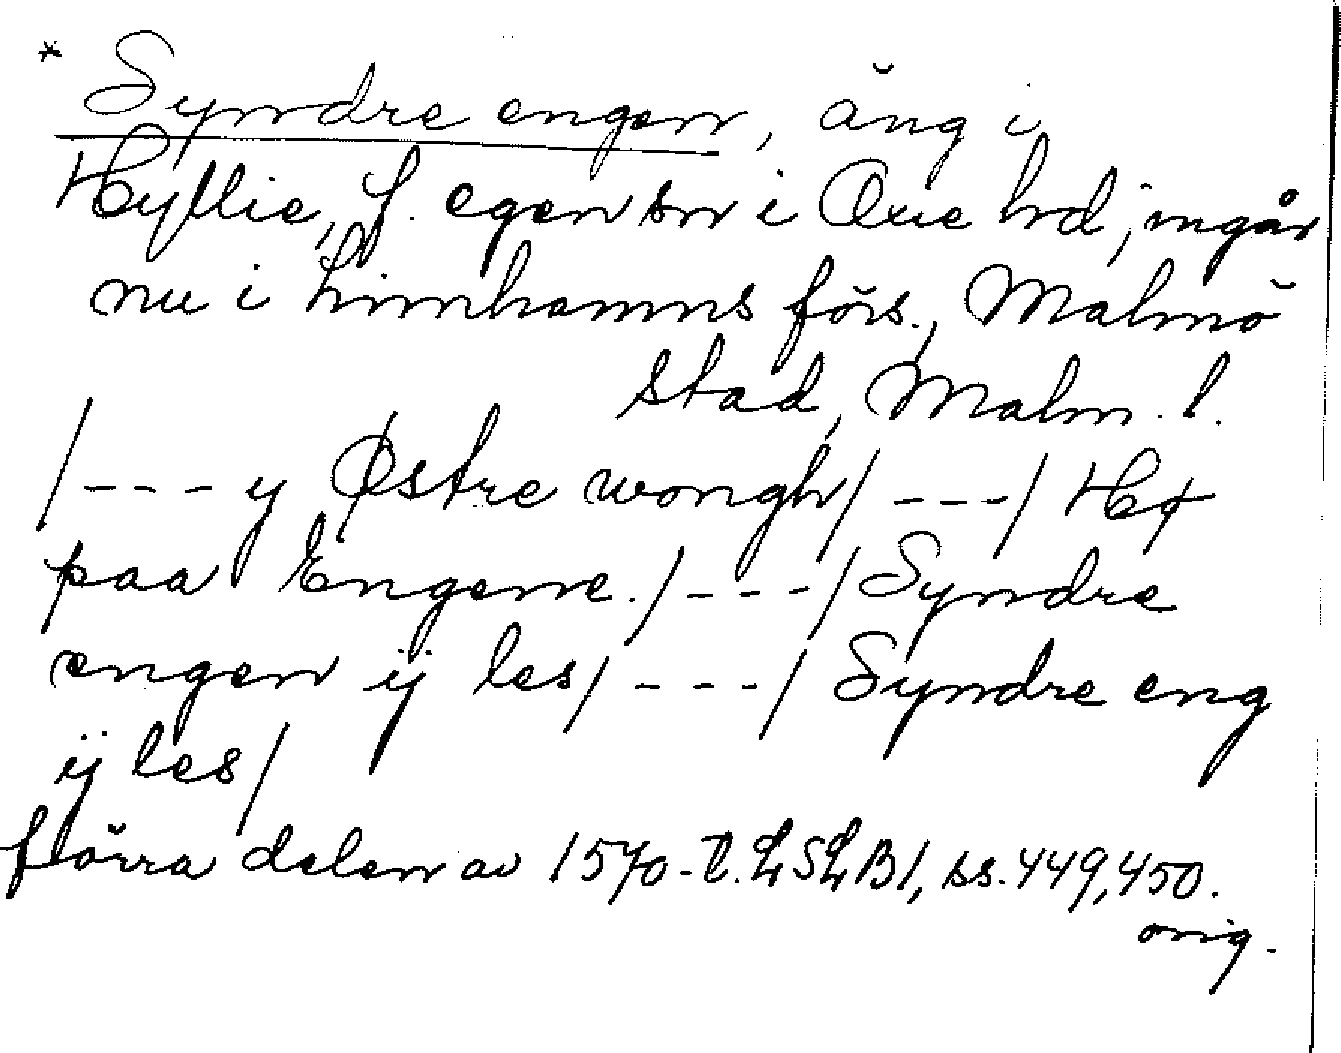 * Syndre engen, äng i
Hyllie, f. egen sn i Oxie hd, ingår
nu i Limhamns förs., Malmö
stad, Malm. l.
/---y Østre wongh/---/ Hø
paa Engerne./---/Syndre
engen ij les/---/ Syndre eng
ij les/
förra delen av 1570-t. LSLB1, ss. 449, 450.
orig.